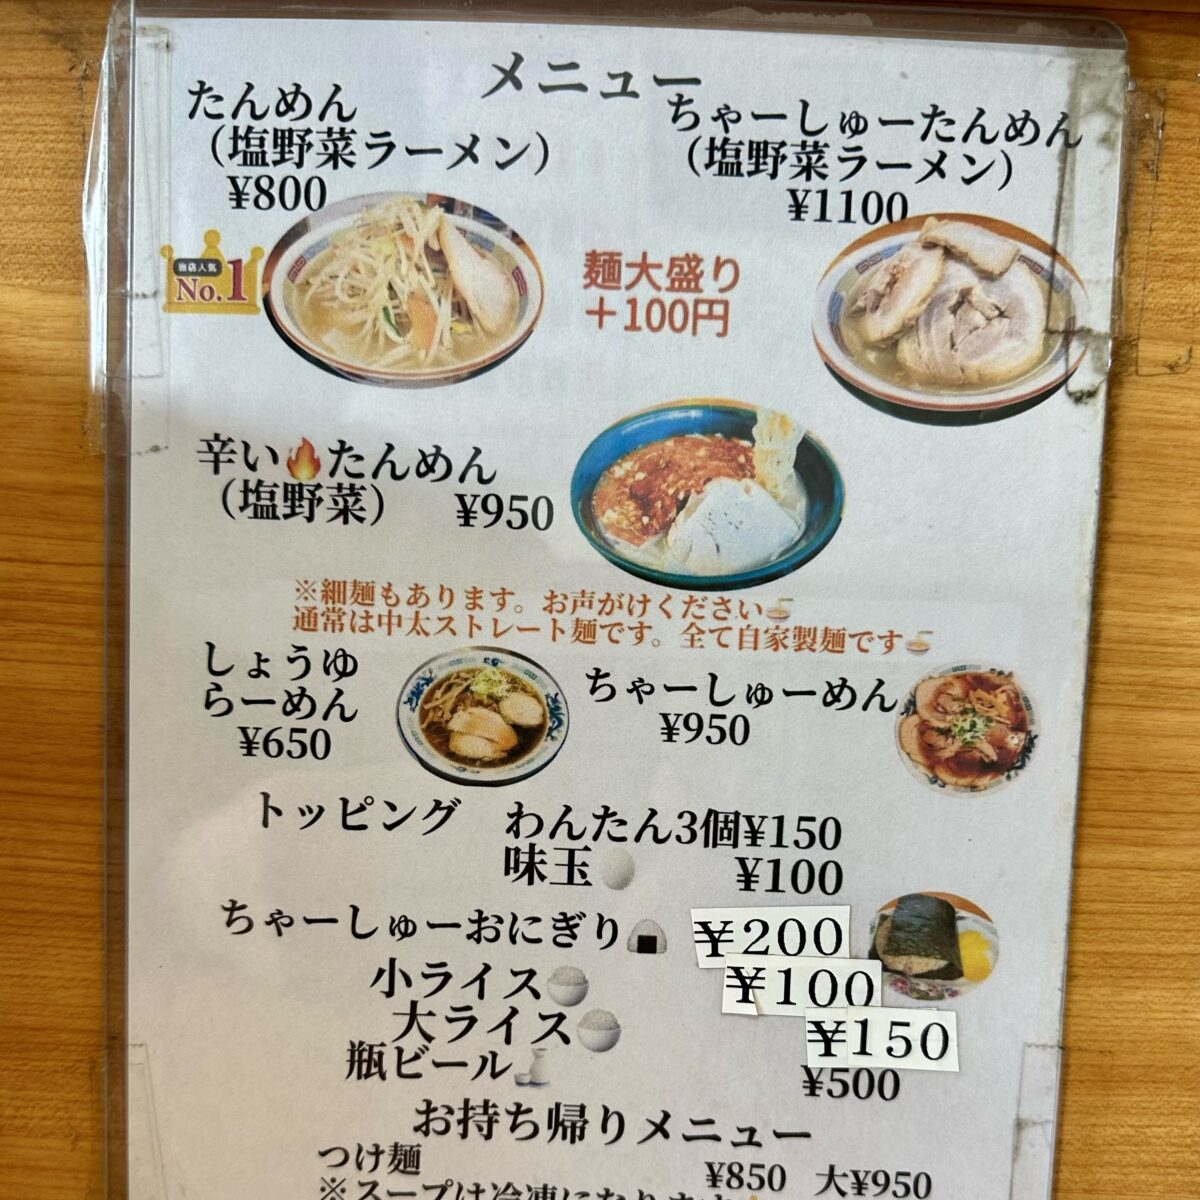 メニュー
たんめん
(塩野菜ラーメン)
¥800
ちゃーしゅーたんめん
(塩野菜ラーメン)
¥1100
当店人気
No.1
麺大盛り
+100円
辛い🔥たんめん
(塩野菜) ¥950
※細麺もあります。お声がけください🍜
通常は中太ストレート麺です。全て自家製麺です🍜
しょうゆ
らーめん
¥650
ちゃーしゅーめん
¥950
トッピング わんたん3個¥150
味玉🥚 ¥100
ちゃーしゅーおにぎり🍙 ¥200
小ライス🍚 ¥100
大ライス🍚 ¥150
瓶ビール🍶 ¥500
お持ち帰りメニュー
つけ麺 ¥850 大¥950
※スープは冷凍になります